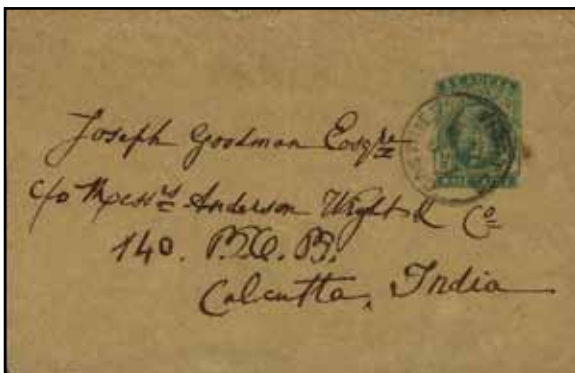 Joseph Goodman Esqre
c/o Messrs Anderson Wright & Co
140. P.O. B.
Calcutta, India